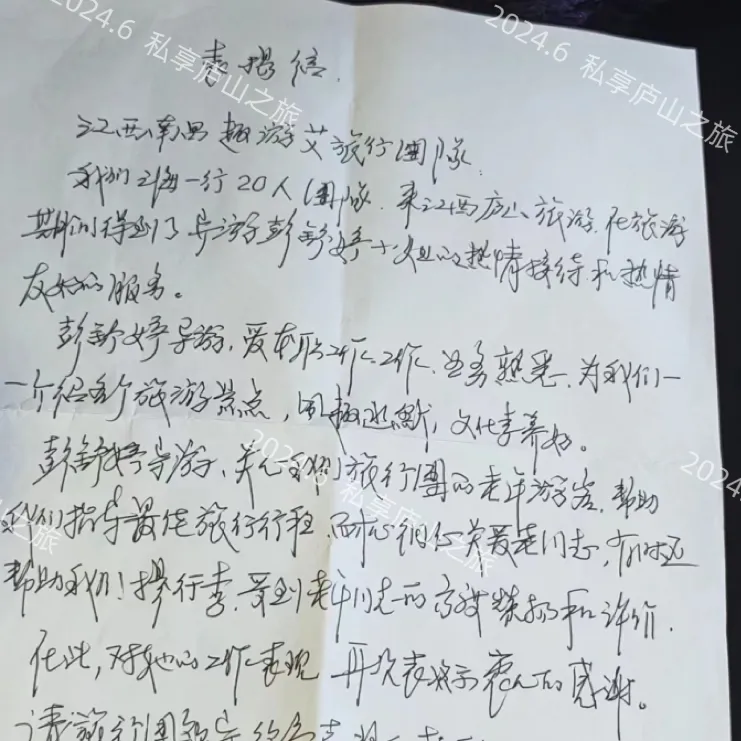 2024.6 私享庐山之旅
表扬信.
江西南昌趣游艾旅行团队:
我们上海一行20人团队.来江西庐山旅游.在旅游
期间得到了导游彭舒婷小姐的热情接待和热情
友好的服务。
彭舒婷导游,爱本职工作工作,业务熟悉.为我们一
一介绍各个旅游景点,风趣幽默,文化素养好。
彭舒婷导游,关心我们旅行团的老年游客,帮助
我们指导最佳旅行行程,耐心细心关爱老同志,有时还
帮助我们提行李,受到老年同志的高度赞扬和评价.
在此,对她的工作表现再次表示衷心的感谢。
请旅行团领导给予表扬
2024.6 私享庐山之旅
2024.6
之旅